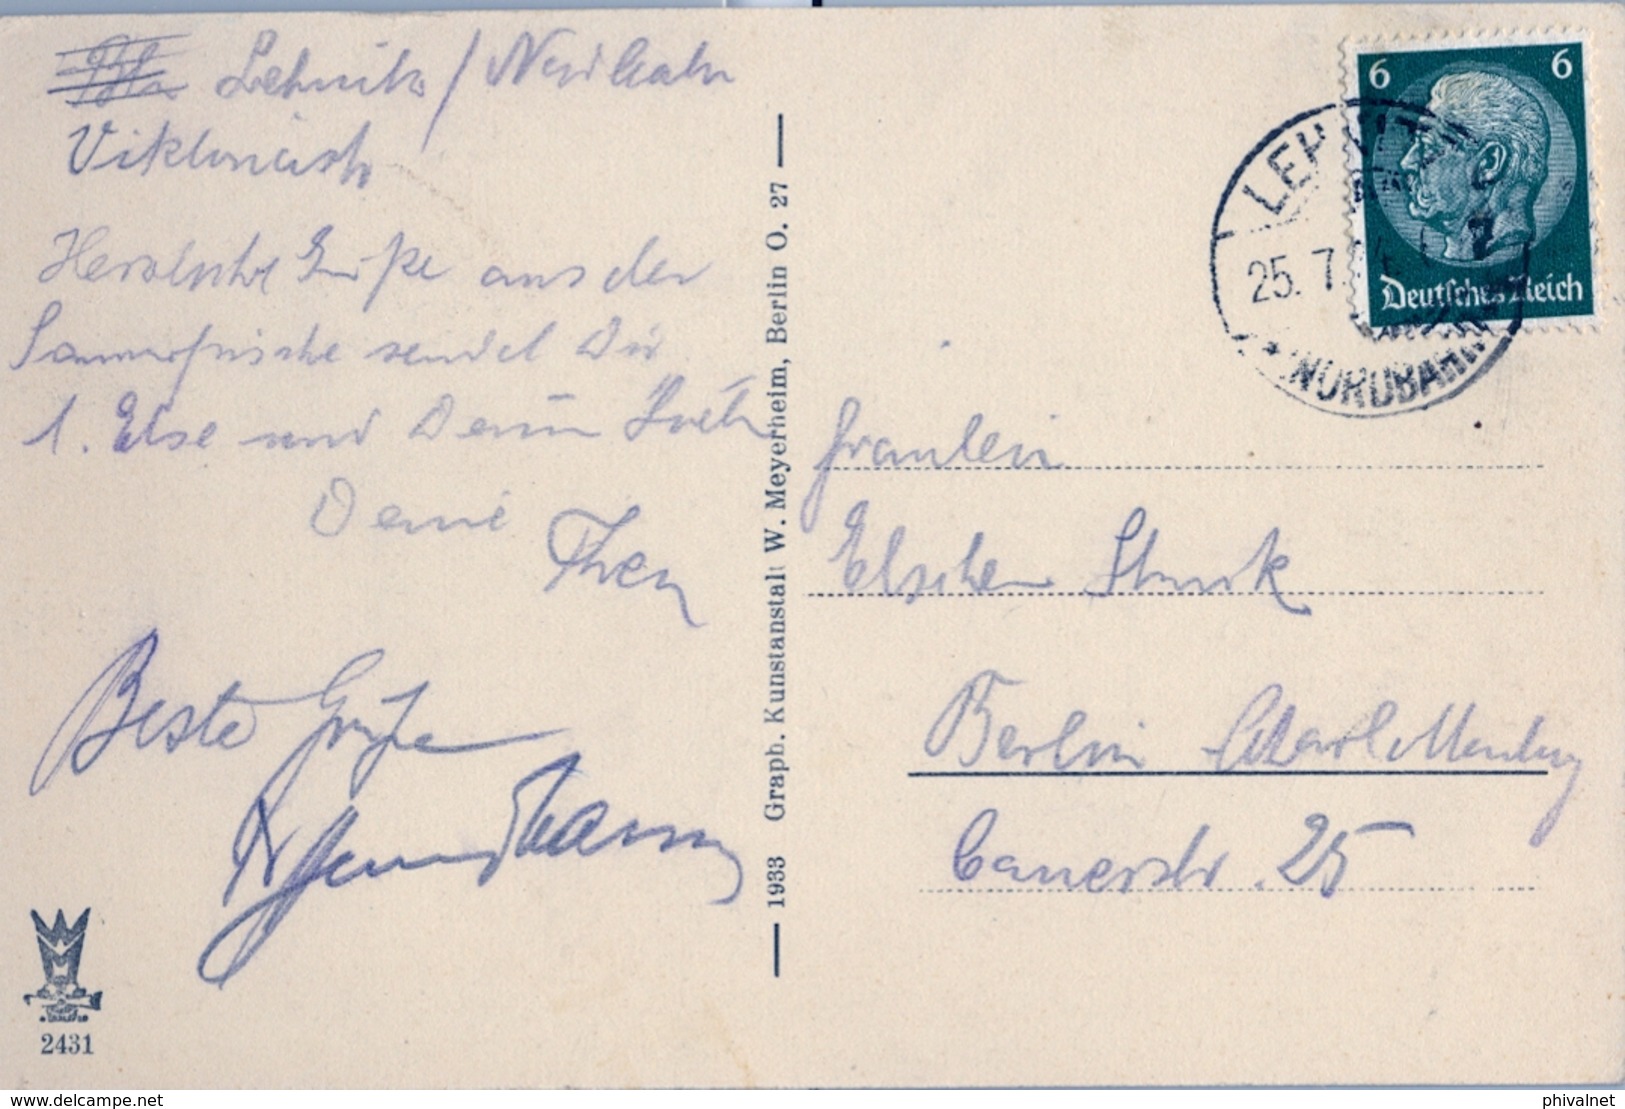 Lehnitz / Nordbahn
Viktoriastr
Herzliche Grüße aus der
Sommerfrische sendet Dir
l. Else und Deine
Deine
Beste Grüße
1933 Graph. Kunstanstalt W. Meyerheim, Berlin O. 27
2431
6 6
Deutsches Reich
LEHNITZ
25. 7.
* NORDBAHN
Fräulein
Elschen
Berlin Charlottenburg
Cauerstr. 25
delcampe.net
phivalnet